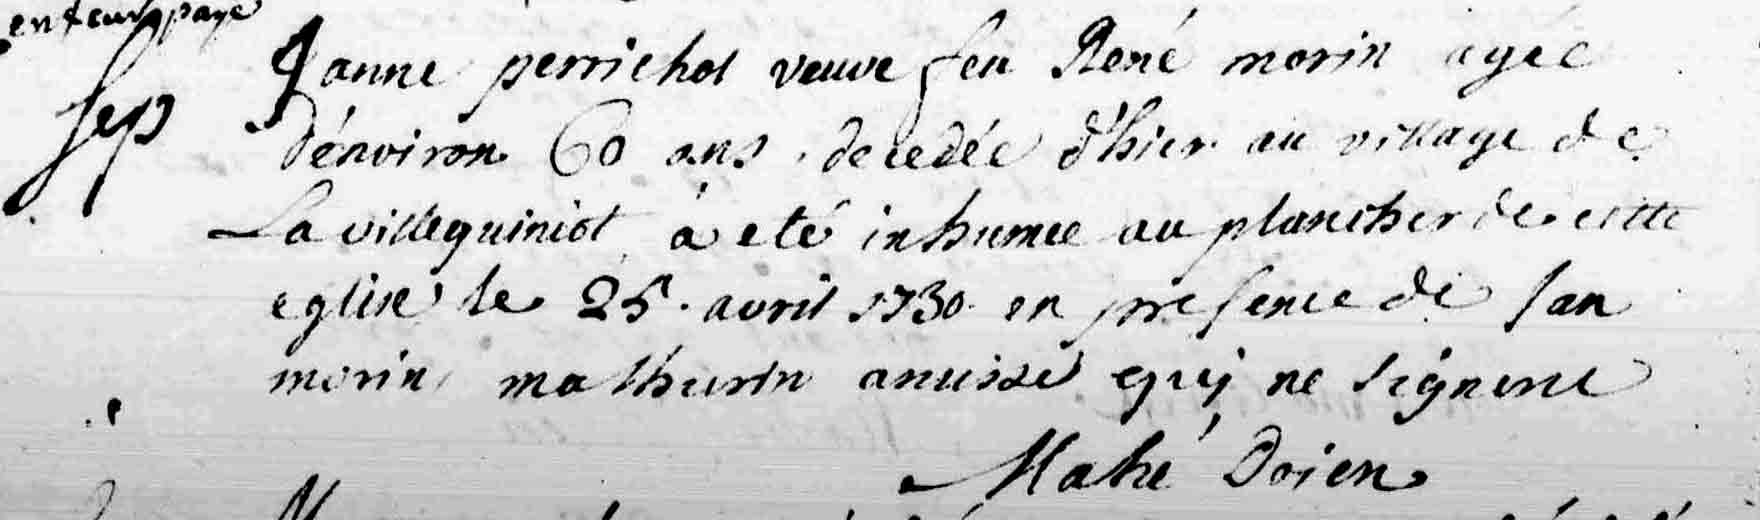 Sep
Janne perrichot veuve feu René morin agée
d'énviron 60 ans decedée d'hier au village de
La villequiniot à eté inhumee au plancher de cette
eglise le 25. avril 1730 en presence de Jan
morin mathurin anuisse quy ne signent
Mahé Doien